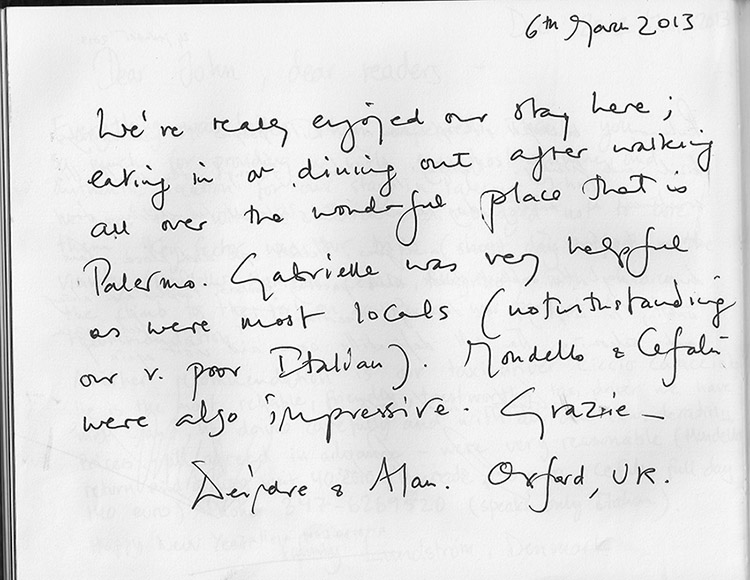 6th March 2013
We're really enjoyed our stay here;
eating in or dining out after walking
all over the wonderful place that is
Palermo. Gabrielle was very helpful
as were most locals (notwithstanding
our v. poor Italian). Mondello & Cefalù
were also impressive. Grazie –
Deirdre & Alan. Oxford, UK.